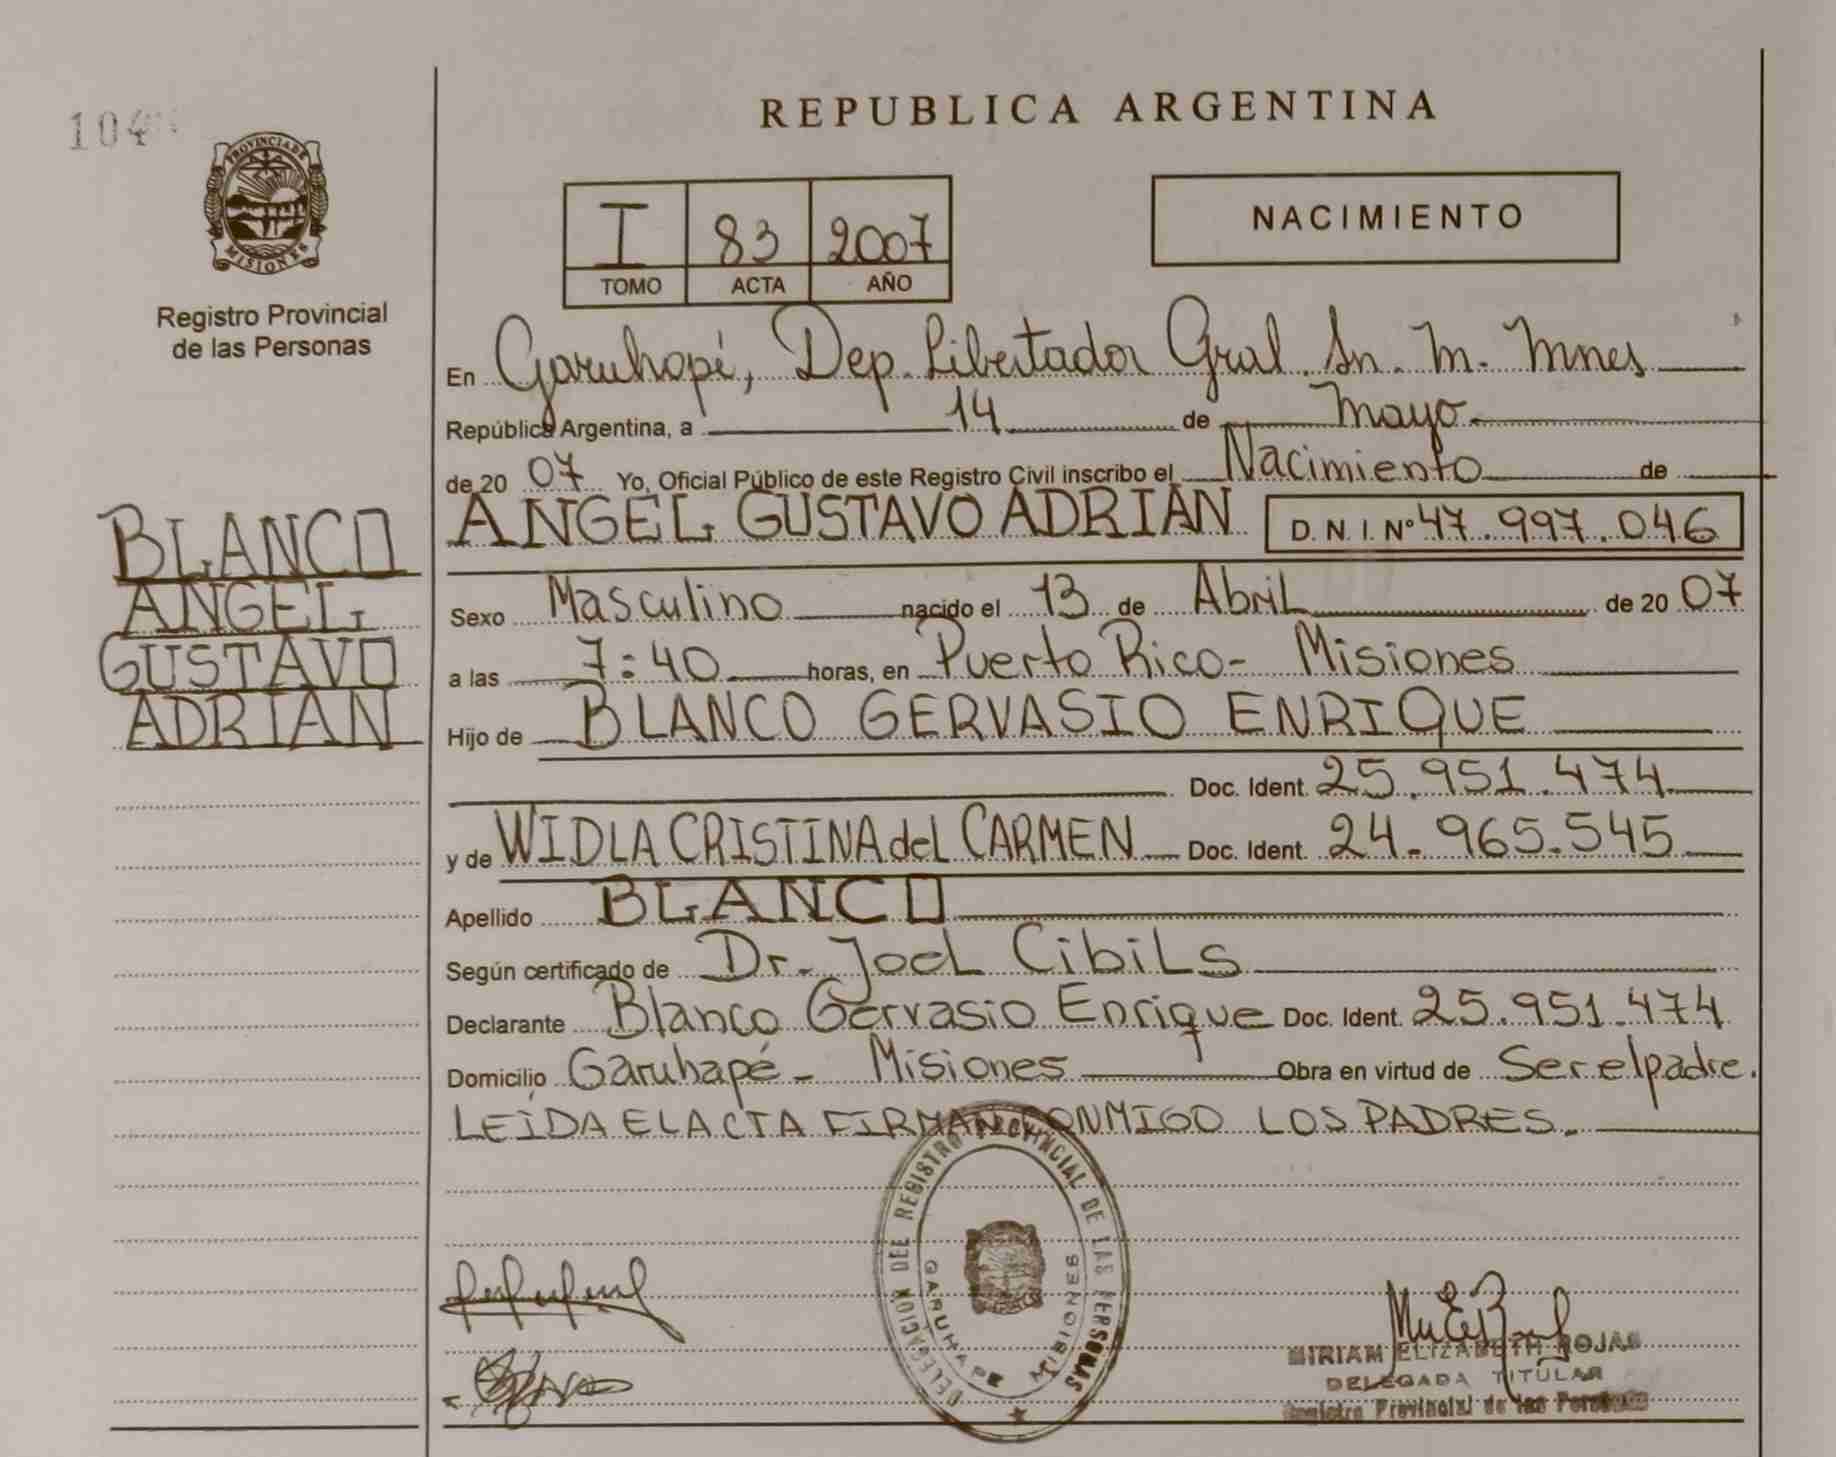 104
PROVINCIA DE
MISIONES
Registro Provincial
de las Personas
REPUBLICA ARGENTINA
I 83 2007
TOMO ACTA AÑO
NACIMIENTO
En Garuhapé, Dep. Libertador Gral. Sn. M. Mnes
República Argentina, a 14 de Mayo
de 20 07 Yo, Oficial Público de este Registro Civil inscribo el Nacimiento de
ANGEL GUSTAVO ADRIAN D. N. I. Nº 47.997.046
BLANCO
ANGEL
GUSTAVO
ADRIAN
Sexo Masculino nacido el 13 de Abril de 20 07
a las 7:40 horas, en Puerto Rico - Misiones
Hijo de BLANCO GERVASIO ENRIQUE
Doc. Ident. 25.951.474
y de WIDLA CRISTINA del CARMEN Doc. Ident. 24.965.545
Apellido BLANCO
Según certificado de Dr. Joel Cibils
Declarante Blanco Gervasio Enrique Doc. Ident. 25.951.474
Domicilio Garuhapé - Misiones Obra en virtud de Ser el padre.
LEÍDA EL ACTA FIRMAN CONMIGO LOS PADRES.
DELEGACION DEL REGISTRO PROVINCIAL DE LAS PERSONAS
GARUHAPE MISIONES
MIRIAM ELIZABETH ROJAS
DELEGADA TITULAR
Registro Provincial de las Personas